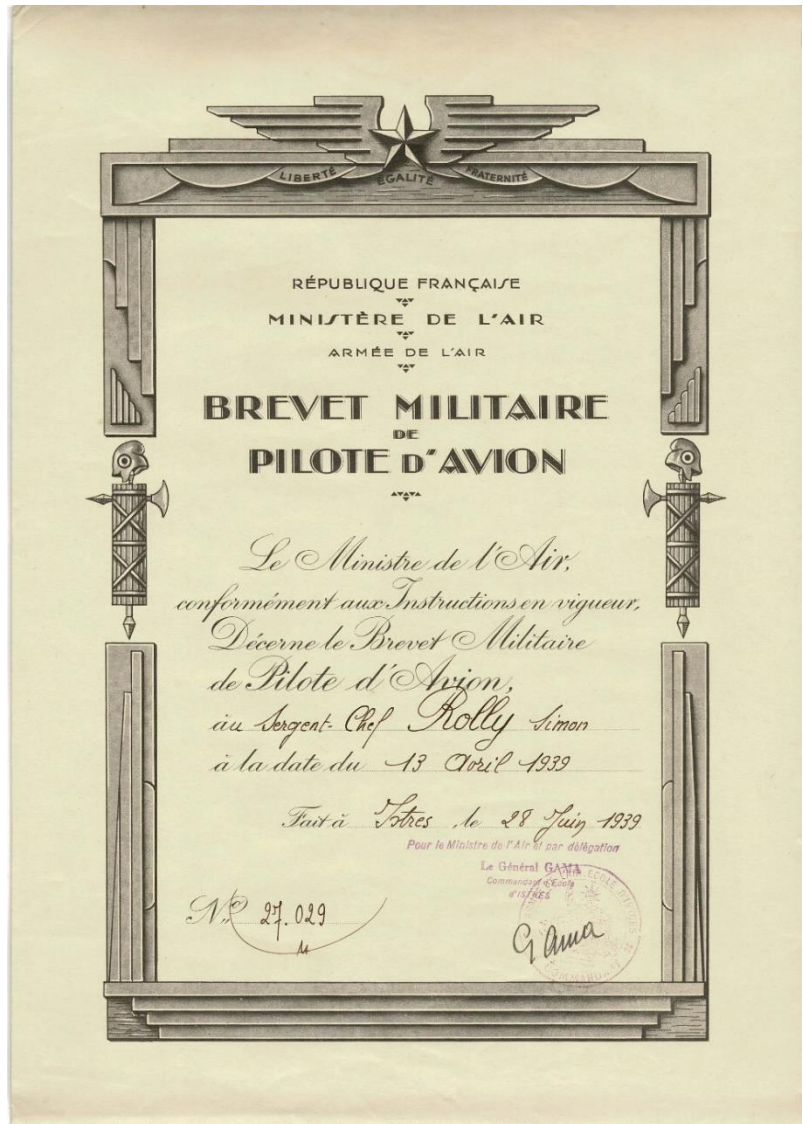 LIBERTÉ ÉGALITÉ FRATERNITÉ
RÉPUBLIQUE FRANÇAISE
MINISTÈRE DE L'AIR
ARMÉE DE L'AIR
BREVET MILITAIRE
DE
PILOTE D'AVION
Le Ministre de l'Air,
conformément aux Instructions en vigueur,
Décerne le Brevet Militaire
de Pilote d'Avion,
au Sergent-Chef Rolly Simon
à la date du 13 Avril 1939
Fait à Istres, le 28 Juin 1939
Pour le Ministre de l'Air et par délégation
Le Général GAMA
Commandant d'Ecole
d'ISTRES
N° 27.029
Gama